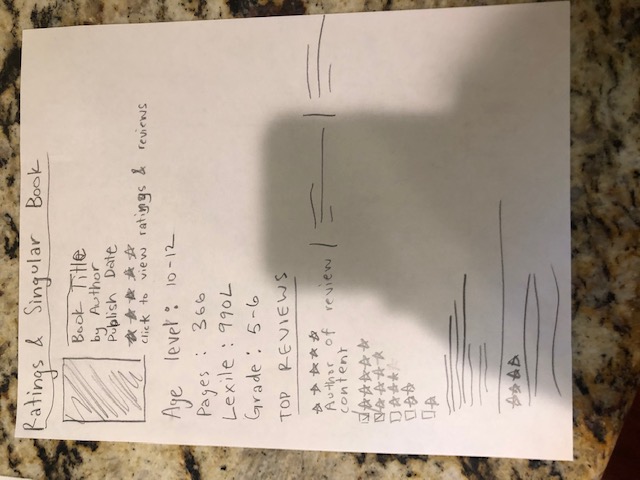 Ratings & Singular Book
Book Title
by Author
Publish Date
click to view ratings & reviews
Age level: 10-12
Pages: 366
Lexile: 990L
Grade: 5-6
TOP REVIEWS
Author of review
content